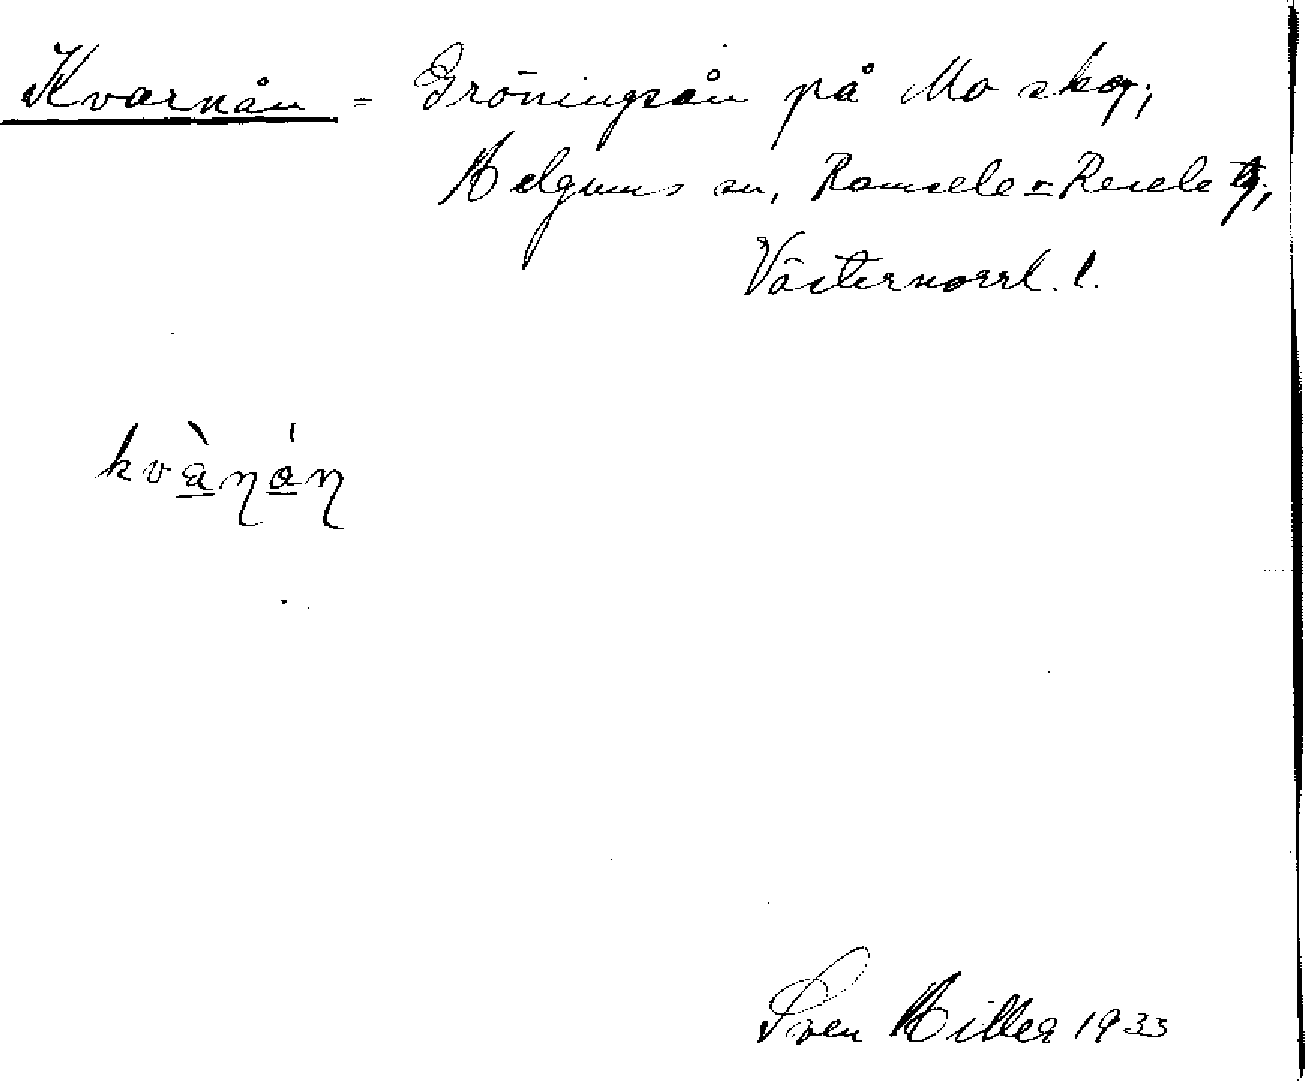 Kvarnån = Gröningsån på Mo skog,
Helgums sn, Ramsele o Resele tg,
Västernorrl. l.
kvànán
Sven Hillea 1933